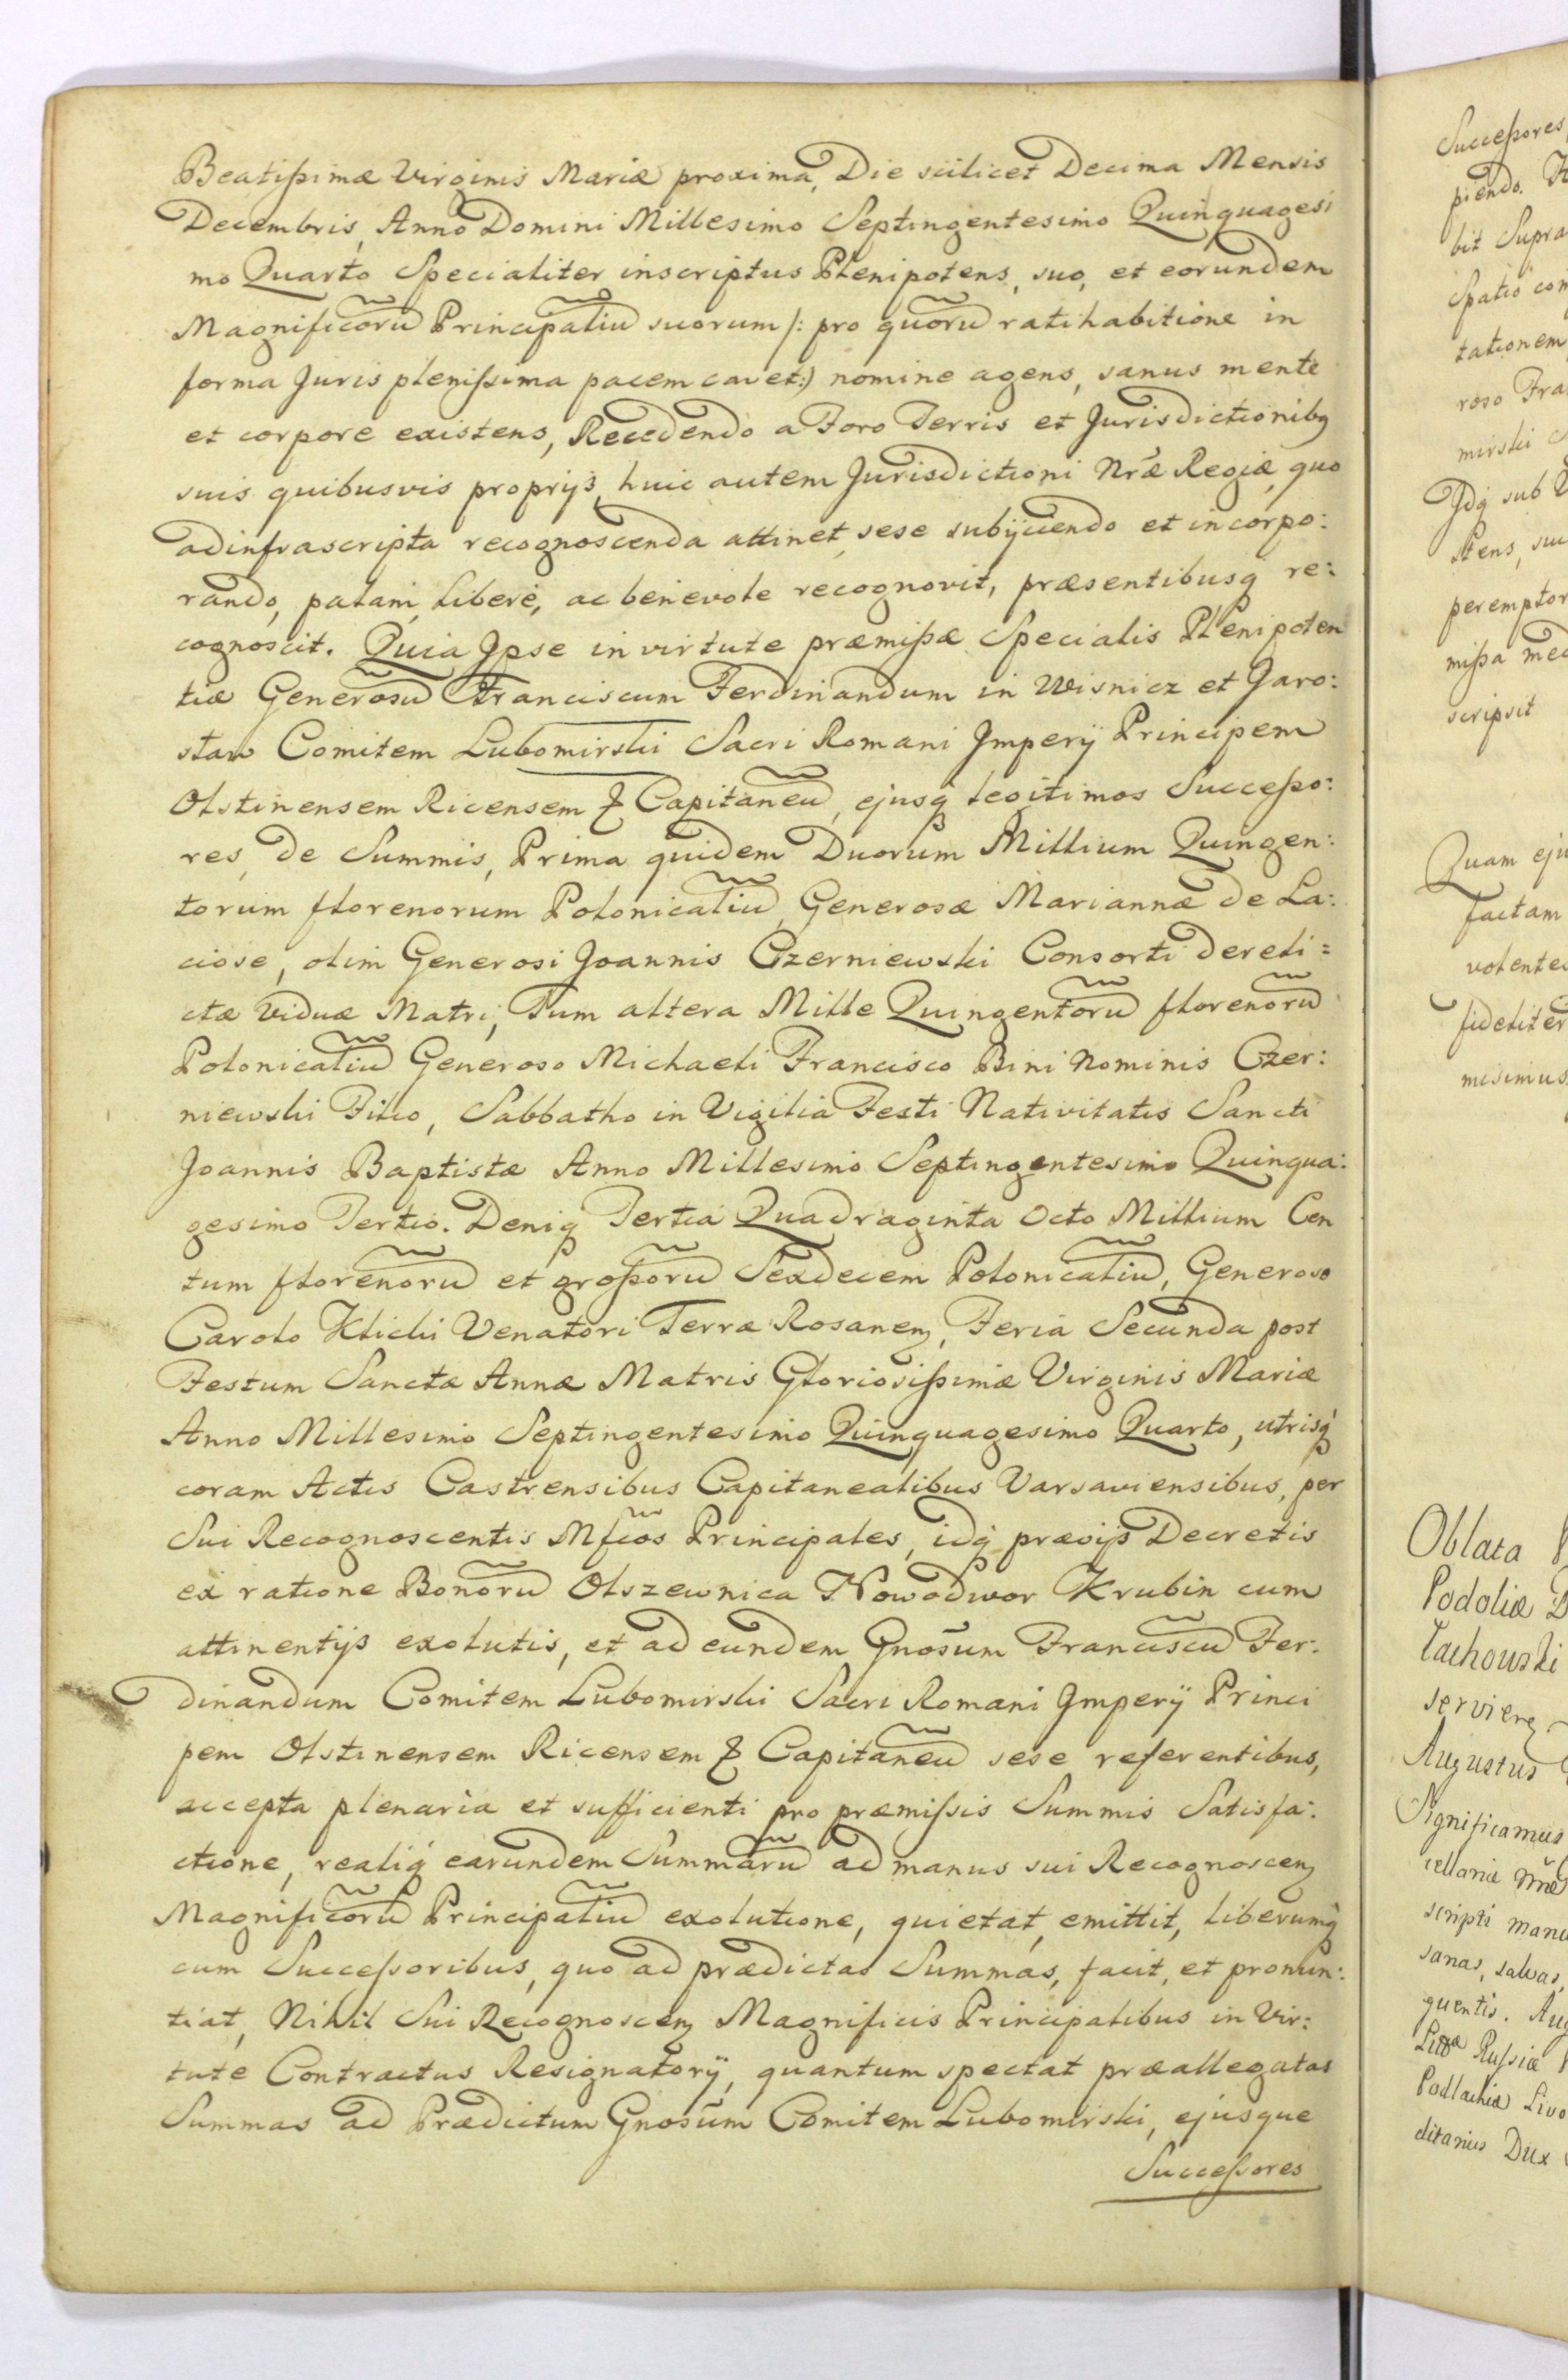 Beatißimæ Virginis Mariæ proxima, Die scilicet Decima Mensis
Decembris, Anno Domini Millesimo Septingentesimo Quinquagesi
mo Quarto Specialiter inscriptus Plenipotens, suo, et eorundem
Magnificorũ Principaliũ suorum /: pro quorũ ratihabitione in
forma Juris plenißima pacem cavet:) nomine agens, sanus mente
et corpore existens, Recedendo a Foro Terris et Jurisdictionibq
suis quibusvis proprijs, huic autem Jurisdictioni Nr̃æ Regiæ, quo
ad infrascripta recognoscenda attinet, sese subijciendo et incorpo:
rando, palam, libere, ac benevole recognovit, præsentibusq re:
cognoscit. Quia Ipse in virtute præmißæ Specialis Plenipoten
tiæ Generosũ Franciscum Ferdinandum in Wisnicz et Jaro:
slaw Comitem Lubomirski Sacri Romani Imperij Principem
Olstinensem Ricensem & Capitaneũ, ejusq legitimos Succeßo:
res, de Summis, Prima quidem Duorum Millium Quingen:
torum florenorum Polonicaliũ, Generosæ Mariannæ de La:
ciose, olim Generosi Joannis Czerniewski Consorti dereli=
ctæ Viduæ Matri, Tum altera Mille Quingentorũ florenorũ
Polonicaliũ Generoso Michaeli Francisco Bini Nominis Czer:
niewski Filio, Sabbatho in Vigilia Festi Nativitatis Sancti
Joannis Baptistæ Anno Millesimo Septingentesimo Quinqua:
gesimo Tertio. Deniq Tertia Quadraginta Octo Millium Cen
tum florenorũ et großorũ Sexdecem Polonicaliũ, Generoso
Carolo Klicki Venatori Terræ Rosanen, Feria Secunda post
Festum Sanctæ Annæ Matris Gloriosißimæ Virginis Mariæ
Anno Millesimo Septingentesimo Quinquagesimo Quarto, utrisq
coram Actis Castrensibus Capitanealibus Varsaviensibus, per
Sui Recognoscentis Mf̃cos Principales, idq prævijs Decretis
ex ratione Bonorũ Olszewnica Nowodwor Krubin cum
attinentijs exolutis, et ad eundem Gnos̃um Franciscũ Fer:
dinandum Comitem Lubomirski Sacri Romani Imperij Princi
pem Olstinensem Ricensem & Capitaneũ sese referentibus,
accepta plenaria et sufficienti pro præmißis Summis Satisfa:
ctione, realiq earundem Summarũ ad manus sui Recognoscen
Magnificorũ Principaliũ exolutione, quietat, emittit, liberumq
cum Succeßoribus, quo ad prædictas Summas, facit, et pronun:
tiat, Nihil Sui Recognoscen Magnificis Principalibus in Vir:
tute Contractus Resignatorij, quantum spectat præallegatas
Summas ad Prædictum Gnos̃um Comitem Lubomirski, ejusque
Succeßores
Succeßores
piendo.
bit Supra
Spatio
tationem
roso
mirski
Idq sub
peremptor
mißa
scripsit
Quam
factam
volentes
fideliter
misimus
Oblata
Podoliæ
Augustus
Significamus
scripti
sanas, salvas,
quentis.
Rußiæ
Podlachiæ
ditarius Dux